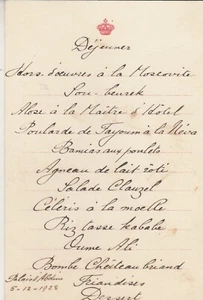 Déjeuner
Hors d'œuvres à la Moscovite
Sou-beurek
Alose à la Maitre d'Hôtel
Poularde de Fayoum à la Néva
Bamias aux poulets
Agneau de lait rôti
Salade Clauzel
Céléris à la moelle
Riz tasse kababe
Oume Ali
Bombe Châteaubriand
Friandises
Dessert
Palais d'Abdine
5-12-1928